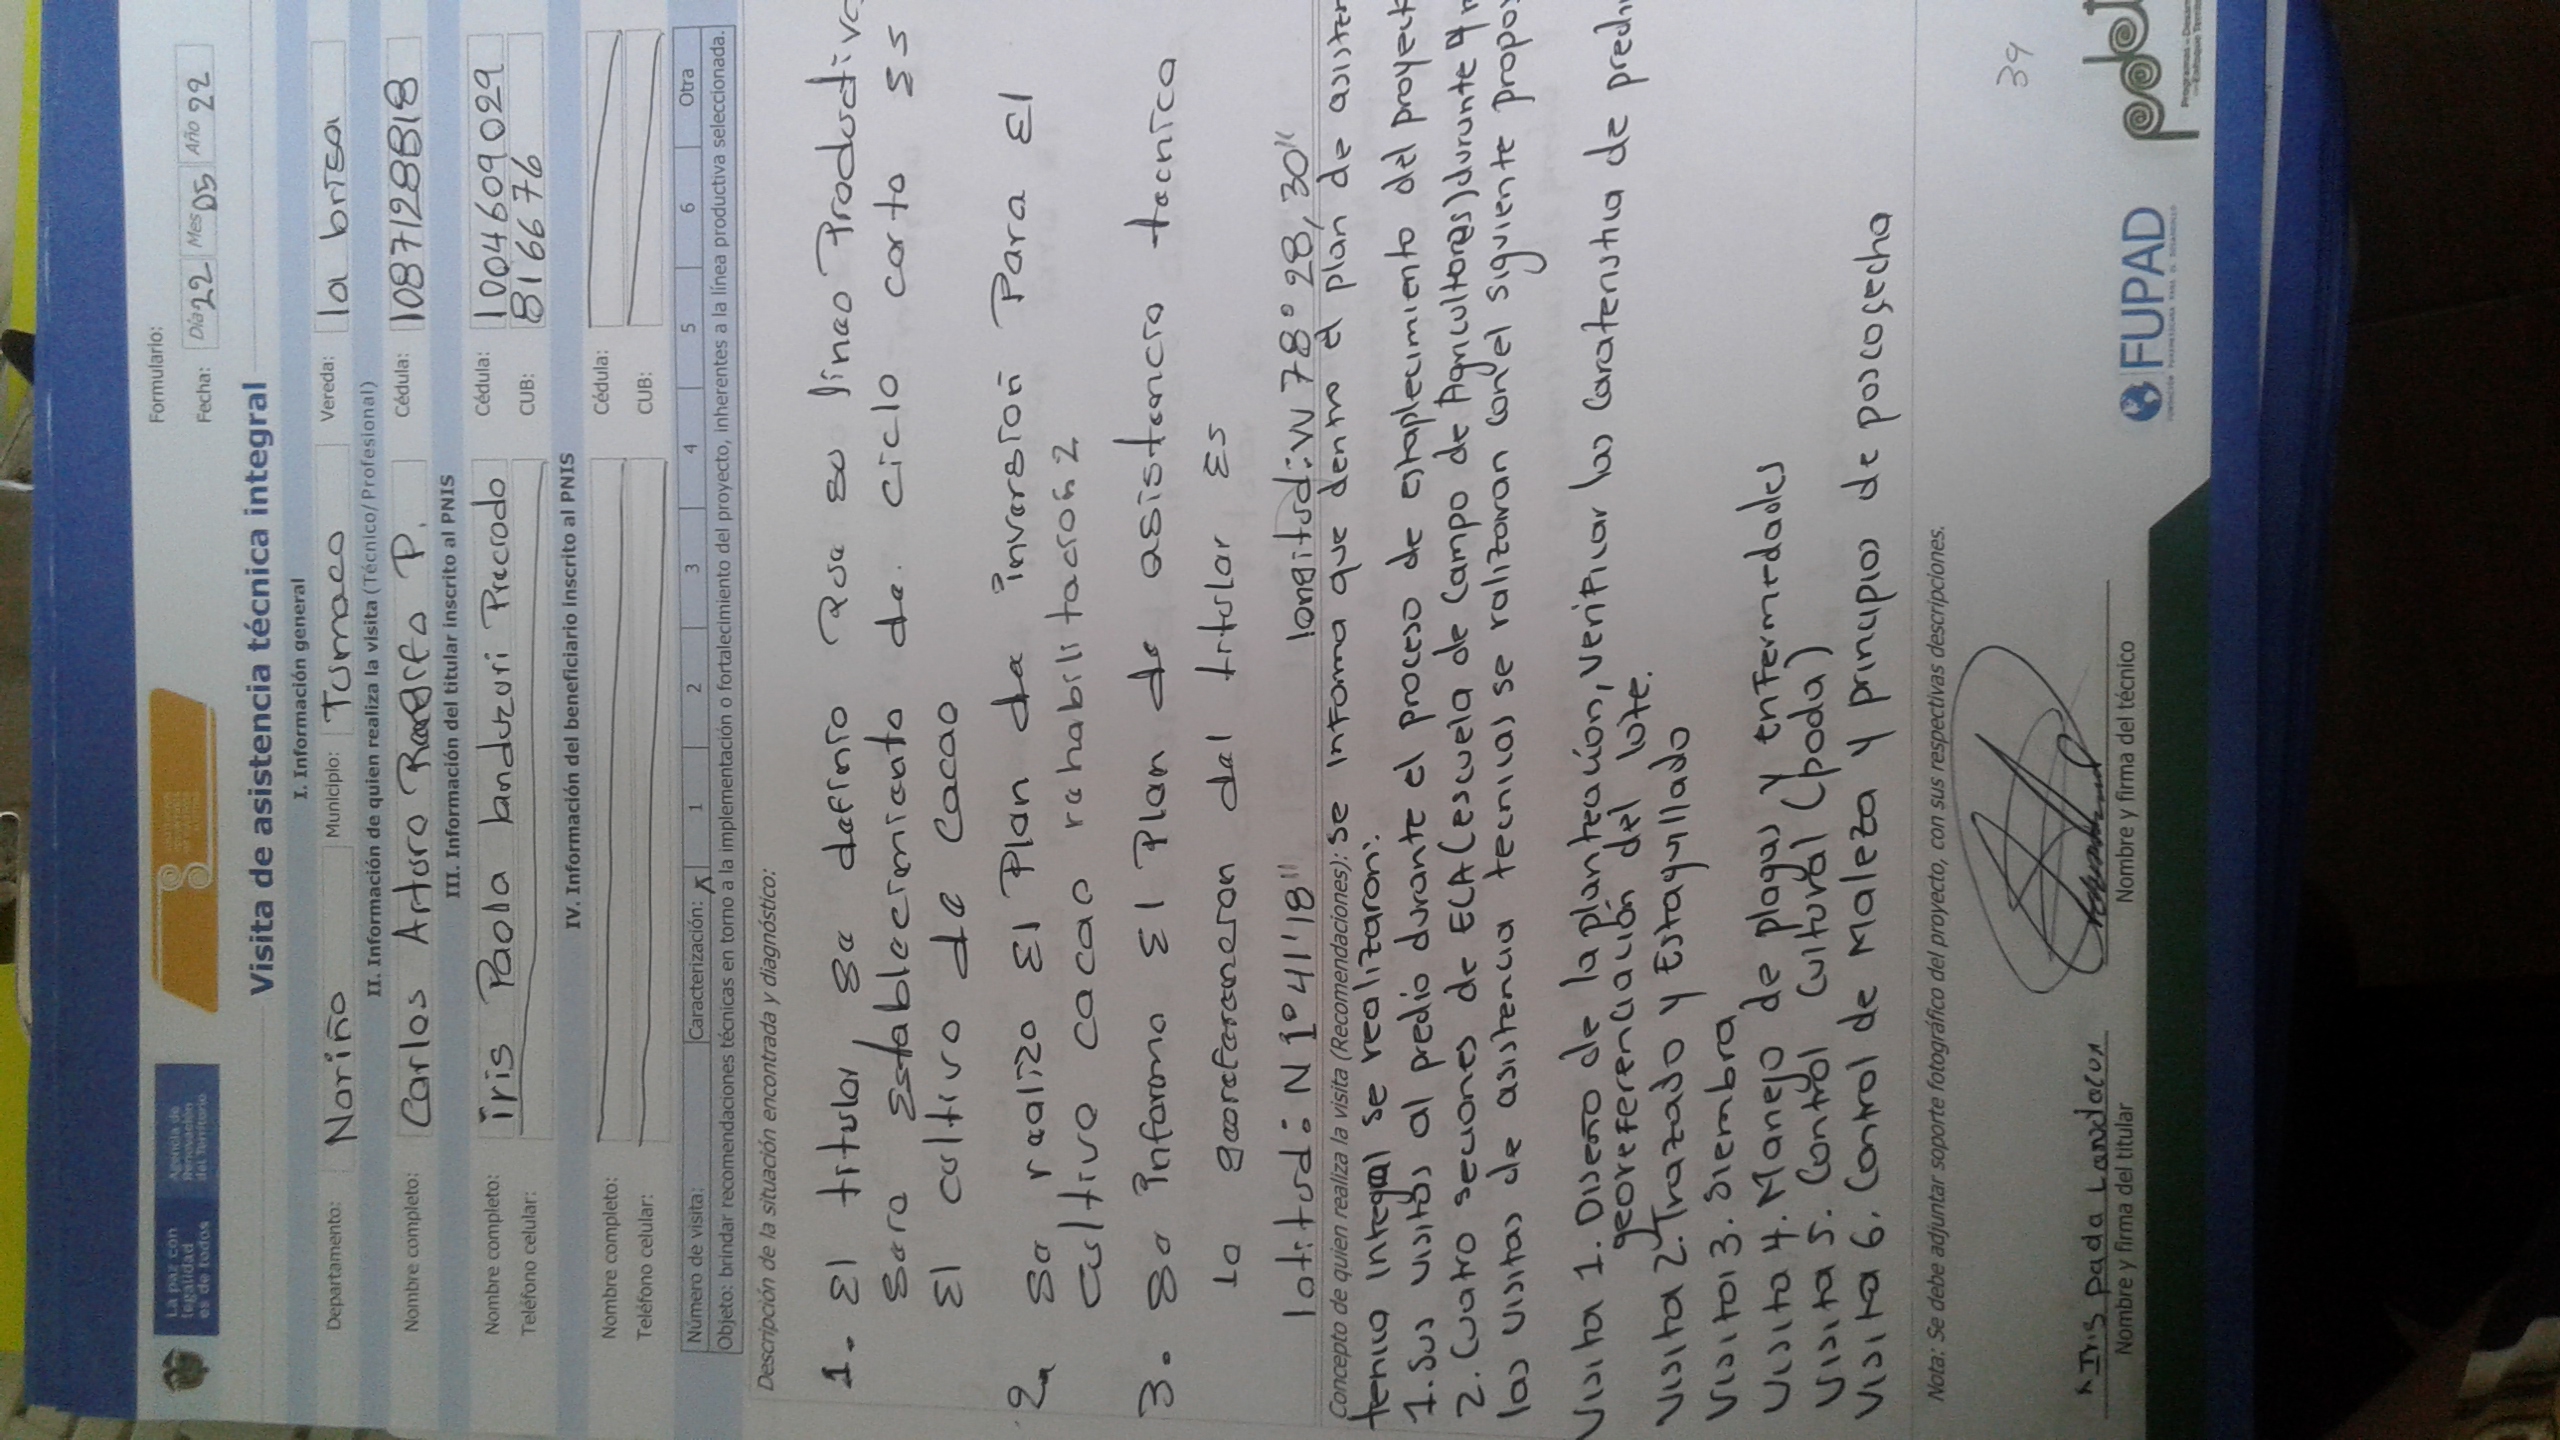 La paz con
legalidad
es de todos
Agencia de
Renovación
del Territorio
Formulario:
Fecha: Día 22 Mes 05 Año 22
Visita de asistencia técnica integral
I. Información general
Departamento: Nariño Municipio: Tumaco Vereda: la brisa
II. Información de quien realiza la visita (Técnico/Profesional)
Nombre completo: Carlos Arturo P. Cédula: 1087128818
III. Información del titular inscrito al PNIS
Nombre completo: iris Paola landzuri Preciado Cédula: 1004609029
Teléfono celular: CUB: 816676
IV. Información del beneficiario inscrito al PNIS
Nombre completo: Cédula:
Teléfono celular: CUB:
Número de visita: Caracterización: X 1 2 3 4 5 6 Otra
Objeto: brindar recomendaciones técnicas en torno a la implementación o fortalecimiento del proyecto, inherentes a la línea productiva seleccionada.
Descripción de la situación encontrada y diagnóstico:
1. El titular Se definio Que su lineo Productiva
Sera Establecimiento de ciclo corto Es
El cultivo de cacao
2. Se realizo El Plan de inversion Para El
cultivo cacao rehabilitacion 2
3. Se informo El Plan de asistencia tecnica
la georeferencion del titular Es
latitud: N 1° 41' 18" longitud: W 78° 28, 30"
Concepto de quien realiza la visita (Recomendaciones): se informa que dentro el plan de
tecnica integral se realizaron:
1. Sus visitas al predio durante el proceso de estaplecimiento del
2. Cuatro secciones de ECA (escuela de campo de Agricultores) durunte 4
las visitas de asistencia tecnicas se ralizaran con el siguiente
visita 1. Diseño de la planteación, verificar las caratenstica de
georeferenciación del lote.
visita 2. Trazado y Estaquillado
visita 3. Siembra
visita 4. Manejo de plagas y enfermedades
visita 5. Control cultural (poda)
visita 6. Control de Maleza y principios de poscosecha
Nota: Se debe adjuntar soporte fotográfico del proyecto, con sus respectivas descripciones.
39
Iris paola
Nombre y firma del titular Nombre y firma del técnico
FUPAD